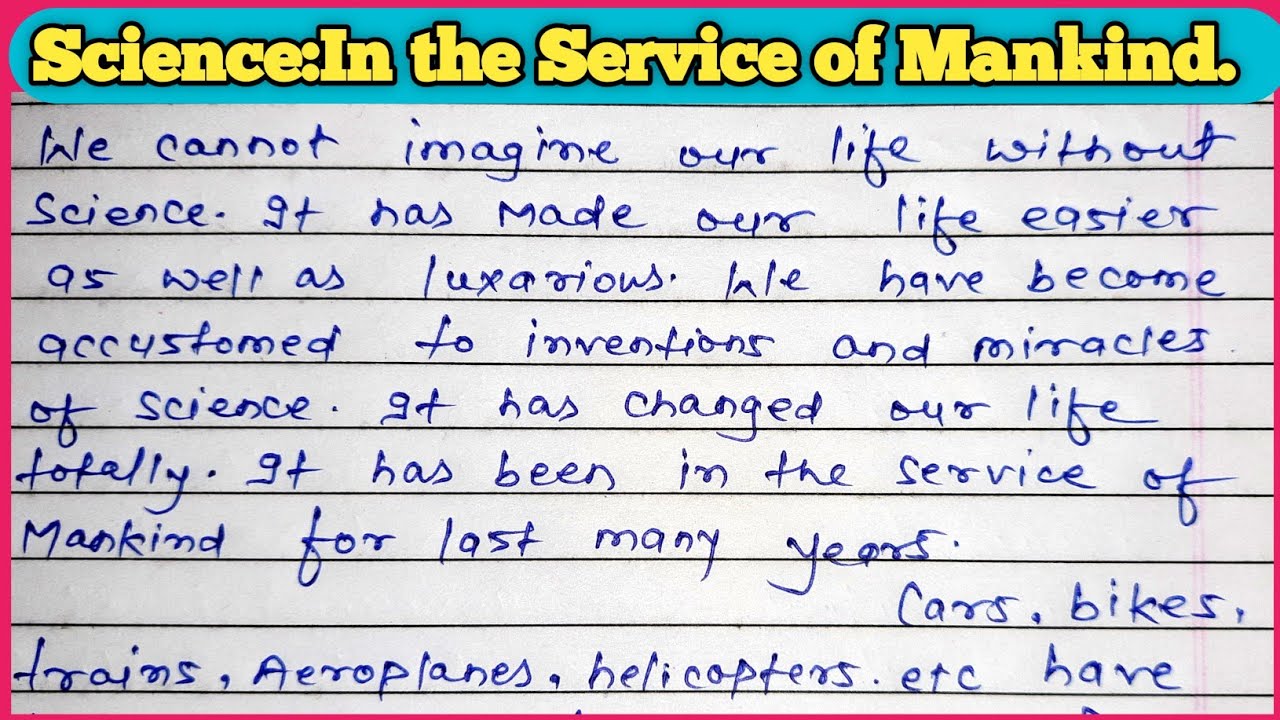 Science:In the Service of Mankind.
We cannot imagine our life without
science. It has Made our life easier
as well as luxarious. We have become
accustomed to inventions and miracles
of science. It has changed our life
totally. It has been in the service of
Mankind for last many years.
Cars, bikes,
trains, Aeroplanes, helicopters. etc have